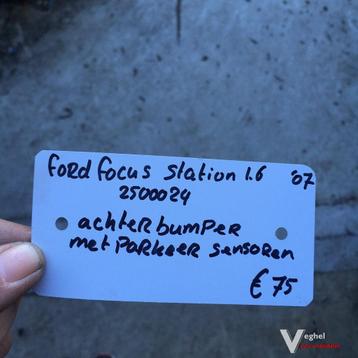 Ford Focus Station 1.6 '07
2500024
achterbumper
met Parkeer sensoren
€ 75
Veghel